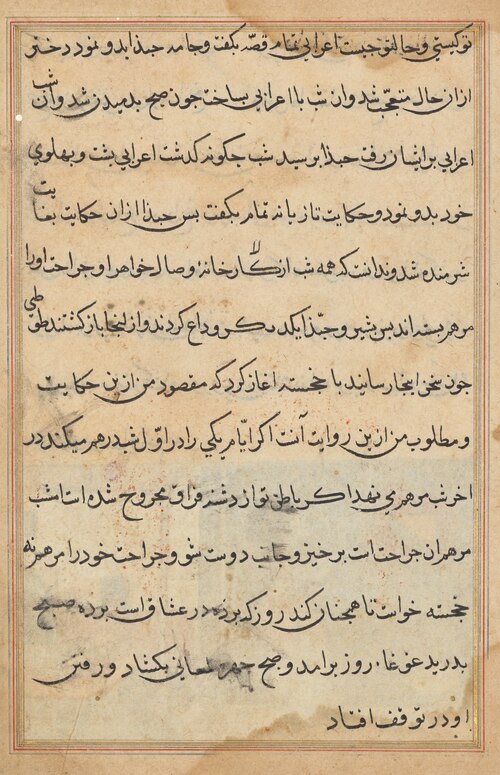 تو کیستی و حال تو چیست اعرابی تمام قصّه بکفت و جامه جبذا بدو نمود دختر
ازان حال متعجّب شد وان شب با اعرابی بساخت جون صبح بدمیدن شد وان شب
اعرابی برایشان رفت جبذا برسید شب جکونه کدشت اعرابی بشت و بهلوی
خود بدو نمود و حکایت تازیانه تمام بکفت بس جبذا ازان حکایت بغایت
شرمنده شد و ندانست که همه شب از کارخانهٔ وصال خواهر او جراحت اورا
مرهم بسته اند بس بشیر و جبّذا یکدیکر وداع کردند و از انجا بازکشتند طوطی
جون سخن اینجا رسانید با خجسته اغاز کرد که مقصود من ازین حکایت
و مطلوب من ازین روایت آنست اکر ایام یکی را در اوّل شب درهم میکند در
اخر شب مرهمی نهد اکر باطن تو از دشنه فراق مجروح شده است امشب
مرهم ان جراحت است برخیز و جانب دوست شو و جراحت خود را مرهم نه
خجسته خواست تا همچنان کند روز که برده در عشاق است برده صبح
بدرید غوغاء روز برامد و صبح جهره لمعانی بکشاد و رفتن
او در توقف افتاد